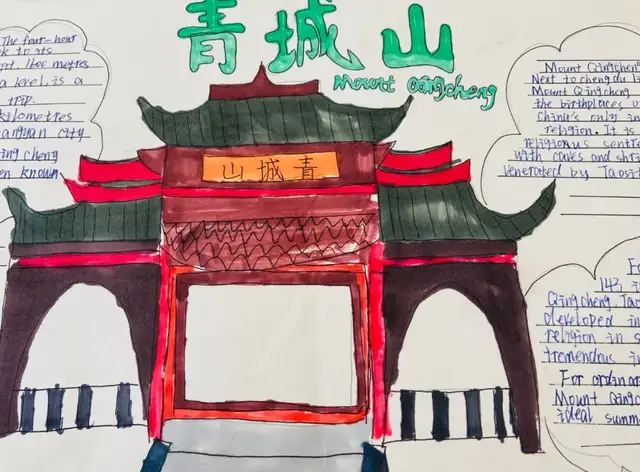 青城山
Mount Qingcheng
山城青
The four-hour
to its
1600 metres
a level is a
trip
kilometres
city
ing cheng
en known
Mount Qingcheng
Next to chengdu i
Mount Qingcheng
the birthplaces o
China's only in
religion. It is
religious sentre
with caves and shr
venerated by Taosit
Fo
143 i
Qingcheng. Tao
developed in
religion in s
tremendous in
For ordinar
Mount Qingche
ideal summ